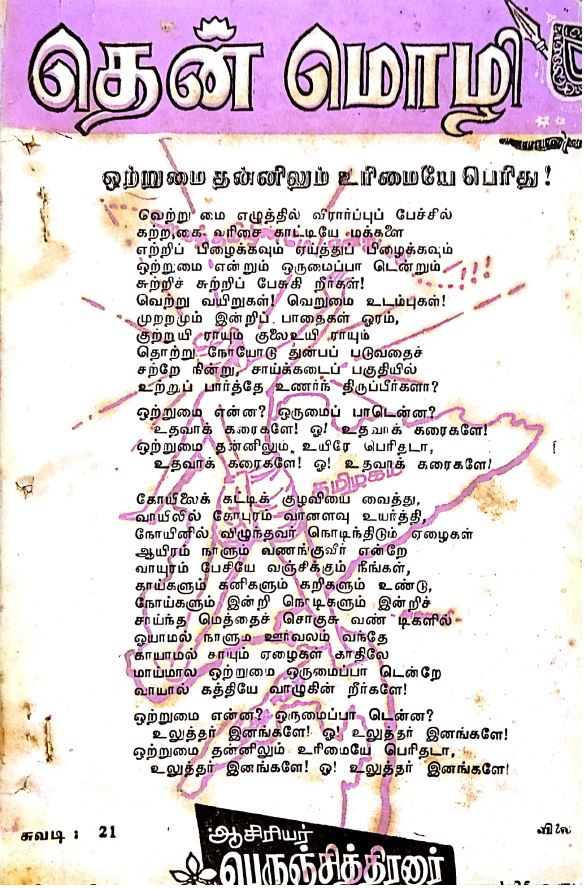 தென் மொழி
ஒற்றுமை தன்னிலும் உரிமையே பெரிது!
வெற்று மை எழுத்தில் வீரார்ப்புப் பேச்சில்
கற்றகை வரிசை காட்டியே மக்களை
எற்றிப் பிழைக்கவும் ஏய்த்துப் பிழைக்கவும்
ஒற்றுமை என்றும் ஒருமைப்பா டென்றும்
சுற்றிச் சுற்றிப் பேசுகி றீர்கள்!
வெற்று வயிறுகள்! வெறுமை உடம்புகள்!
முற்றமும் இன்றிப் பாதைகள் ஓரம்,
குற்றுயி ராயும் குலைஉயி ராயும்
தொற்று நோயோடு துன்பப் படுவதைச்
சற்றே நின்று, சாய்க்கடைப் பகுதியில்
உற்றுப் பார்த்தே உணர்ந் திருப்பீர்களா?
ஒற்றுமை என்ன? ஒருமைப் பாடென்ன?
உதவாக் கரைகளே! ஓ! உதவாக் கரைகளே!
ஒற்றுமை தன்னிலும் உயிரே பெரிதடா,
உதவாக் கரைகளே! ஓ! உதவாக் கரைகளே!
தமிழகம்
கோயிலைக் கட்டிக் குழவியை வைத்து,
வாயிலில் கோபுரம் வானளவு உயர்த்தி,
நோயினில் விழுந்தவர் நொடிந்திடும் ஏழைகள்
ஆயிரம் நாளும் வணங்குவீர் என்றே
வாயுரம் பேசியே வஞ்சிக்கும் நீங்கள்,
காய்களும் கனிகளும் கறிகளும் உண்டு,
நோய்களும் இன்றி நொடிகளும் இன்றிச்
சாய்ந்த மெத்தைச் சொகுசு வண்டிகளில்
ஓயாமல் நாளும் ஊர்வலம் வந்தே
காயாமல் சாயும் ஏழைகள் காதிலே
மாய்மால ஒற்றுமை ஒருமைப்பா டென்றே
வாயால் கத்தியே வாழுகின் றீர்களே!
ஒற்றுமை என்ன? ஒருமைப்பா டென்ன?
உலுத்தர் இனங்களே! ஓ! உலுத்தர் இனங்களே!
ஒற்றுமை தன்னிலும் உரிமையே பெரிதடா,
உலுத்தர் இனங்களே! ஓ! உலுத்தர் இனங்களே!
சுவடி : 21
ஆசிரியர்
விலை
பெருஞ்சித்திரனார்